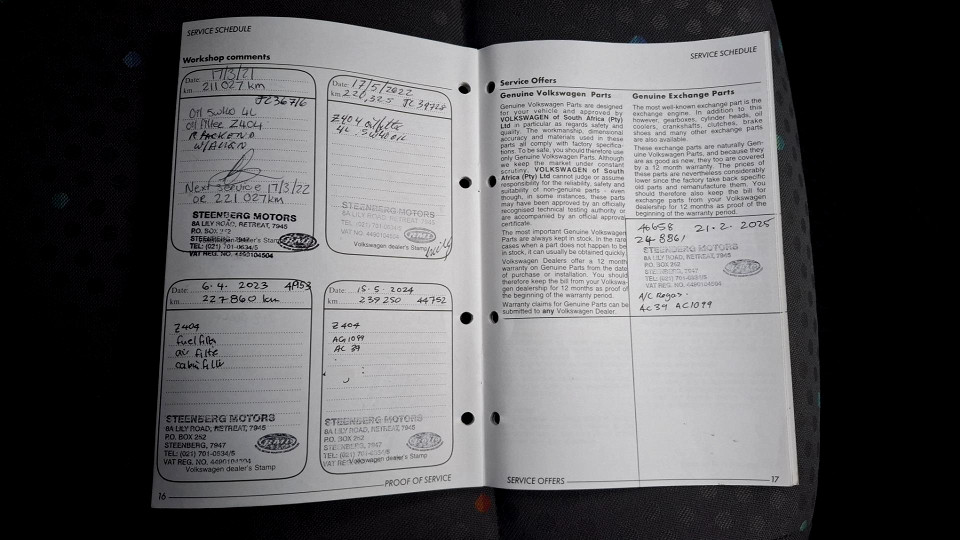 SERVICE SCHEDULE
Workshop comments
Date 17/3/21
km 211 027 km
JC36716
Oil 5W40 4L
Oil filter Z404
W/Align
Next service 17/3/22
or 221 027km
STEENBERG MOTORS
8A LILY ROAD, RETREAT, 7945
P.O. BOX 252
STEENBERG, 7947
Volkswagen dealer's Stamp
TEL: (021) 701-0934/5
VAT REG. NO. 4490104504
Date 17/5/2022
km
JC 39728
Z404 oil filter
4L 5W40 oil
STEENBERG MOTORS
8A LILY ROAD, RETREAT, 7945
P.O. BOX 252
STEENBERG, 7947
TEL: (021) 701-0934/5
VAT REG. NO. 4490104504
Volkswagen dealer's Stamp
Date 6.4.2023 4953
km 227860 km
Z404
fuel filt
air filte
cabin filt
STEENBERG MOTORS
8A LILY ROAD, RETREAT, 7945
P.O. BOX 252
STEENBERG, 7947
TEL: (021) 701-0934/5
VAT REG. NO. 4490104504
Volkswagen dealer's Stamp
Date 15.5.2024
km 239250 44752
Z404
AG1099
AC 39
STEENBERG MOTORS
8A LILY ROAD, RETREAT, 7945
P.O. BOX 252
STEENBERG, 7947
TEL: (021) 701-0934/5
VAT RE
Volkswagen dealer's Stamp
16
PROOF OF SERVICE
SERVICE SCHEDULE
Service Offers
Genuine Volkswagen Parts
Genuine Volkswagen Parts are designed
for your vehicle and approved by
VOLKSWAGEN of South Africa (Pty)
Ltd in particular as regards safety and
quality. The workmanship, dimensional
accuracy and materials used in these
parts all comply with factory specifica-
tions. To be safe, you should therefore use
only Genuine Volkswagen Parts. Although
we keep the market under constant
scrutiny, VOLKSWAGEN of South
Africa (Pty) Ltd cannot judge or assume
responsibility for the reliability, safety and
suitability of non-genuine parts - even
though, in some instances, these parts
may have been approved by an officially
recognised technical testing authority or
are accompanied by an official approval
certificate.
The most important Genuine Volkswagen
Parts are always kept in stock. In the rare
cases when a part does not happen to be
in stock, it can usually be obtained quickly.
Volkswagen Dealers offer a 12 month
warranty on Genuine Parts from the date
of purchase or installation. You should
therefore keep the bill from your Volkswa-
gen dealership for 12 months as proof of
the beginning of the warranty period.
Warranty claims for Genuine Parts can be
submitted to any Volkswagen Dealer.
Genuine Exchange Parts
The most well-known exchange part is the
exchange engine. In addition to this
however, gearboxes, cylinder heads, oil
coolers, crankshafts, clutches, brake
shoes and many other exchange parts
are also available.
These exchange parts are naturally Gen-
uine Volkswagen Parts, and because they
are as good as new, they too are covered
by a 12 month warranty. The prices of
these parts are nevertheless considerably
lower since the factory take back specific
old parts and remanufacture them. You
should therefore also keep the bill for
exchange parts from your Volkswagen
dealership for 12 months as proof of the
beginning of the warranty period.
46658 21-2-2025
248861
STEENBERG MOTORS
8A LILY ROAD, RETREAT, 7945
P.O. BOX 252
STEENBERG, 7947
TEL: (021) 701-0934/5
VAT REG. NO. 4490104504
A/C Regas.
AC39 AC1099
SERVICE OFFERS
17